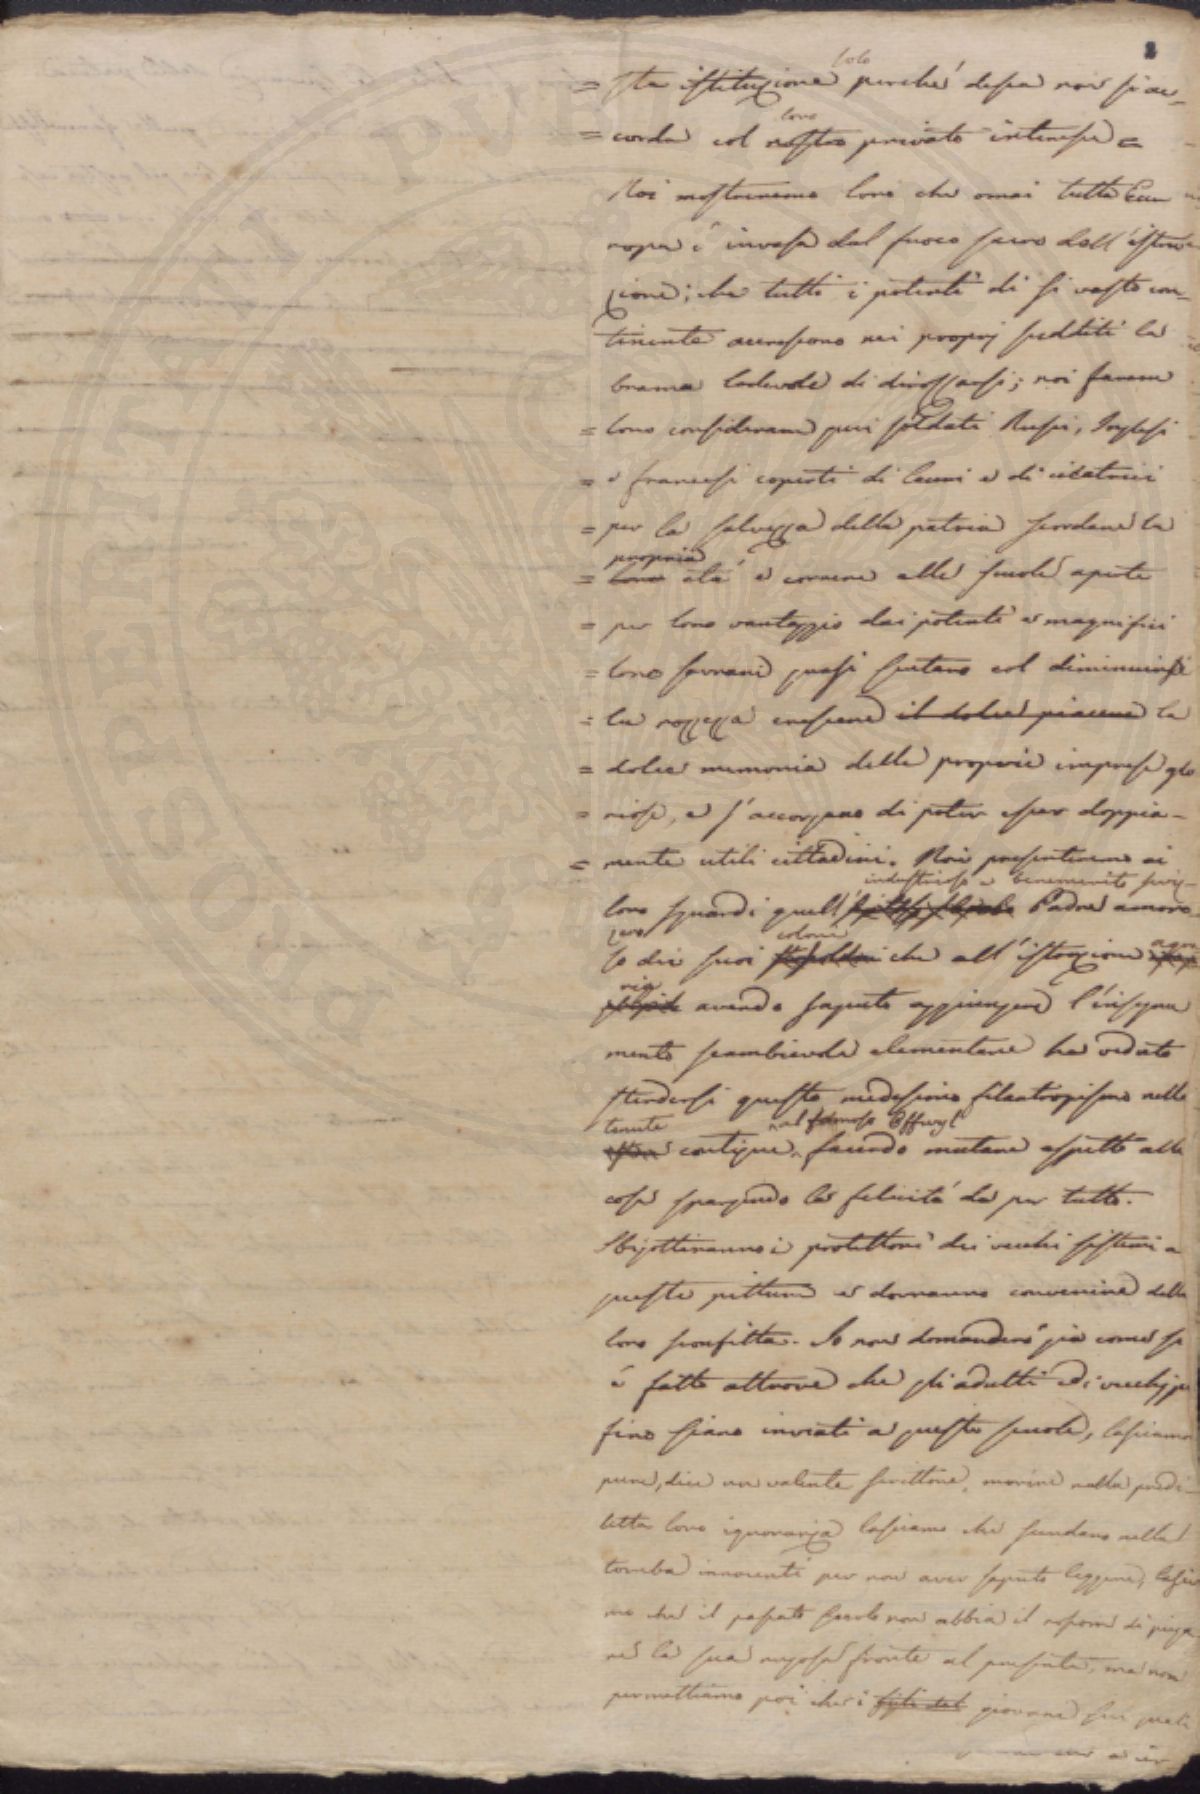 2
solo
= sta istituzione perché dessa non si ac-
loro
= corda col nostro privato interesse =
Noi mostreremo loro che omai tutta Eu
ropa é invasa dal fuoco sacro dell'istru
zione; che tutti i potenti di si vasto con-
tinente accrescono nei proprj sudditi la
brama lodevole di dirozzarsi; noi farem
= loro considerare quei soldati Russi, Inglesi
= e francesi coperti di lauri e di cicatrici
= per la salvezza della patria scordare la
propria
= loro etá e correre alle scuole aperte
= per loro vantaggio dai potenti e magnifici
= loro sovrani quasi sentano col diminuirsi
= la rozzezza crescere il dolce piacere la
= dolce memoria delle proprie imprese glo
= riose, e s'accorgano di poter esser doppia-
= mente utili cittadini. Noi presenteremo ai
industrioso e benemerito sviz-
loro sguardi quell' Padre amoro
zero coloni agra
so dei suoi che all'istruzione
ria
avendo saputo aggiungere l'insegna
mento scambievole elementare ha veduto
stendersi questo medesimo filantropismo nelle
tenute nel famoso Offwyl
contigue, facendo mutare aspetto alle
cose spargendo la felicitá da per tutto.
Sbigottiranno i protettori dei vecchi sistemi a
queste pitture e dovranno convenire della
loro sconfitta. Io non domanderó giá come si
é fatto altrove che gli adulti ed i vecchj per
fino siano inviati a queste scuole, lasciamo
pure, dice un valente scrittore, morire nella predi-
letta loro ignoranza lasciamo che scendano nella
tomba innocenti per non aver saputo leggere, lascia
mo che il passato secolo non abbia il rossore di piega
re la sua rugosa fronte al presente, ma non
permettiamo poi che i figli del giovani sui quali